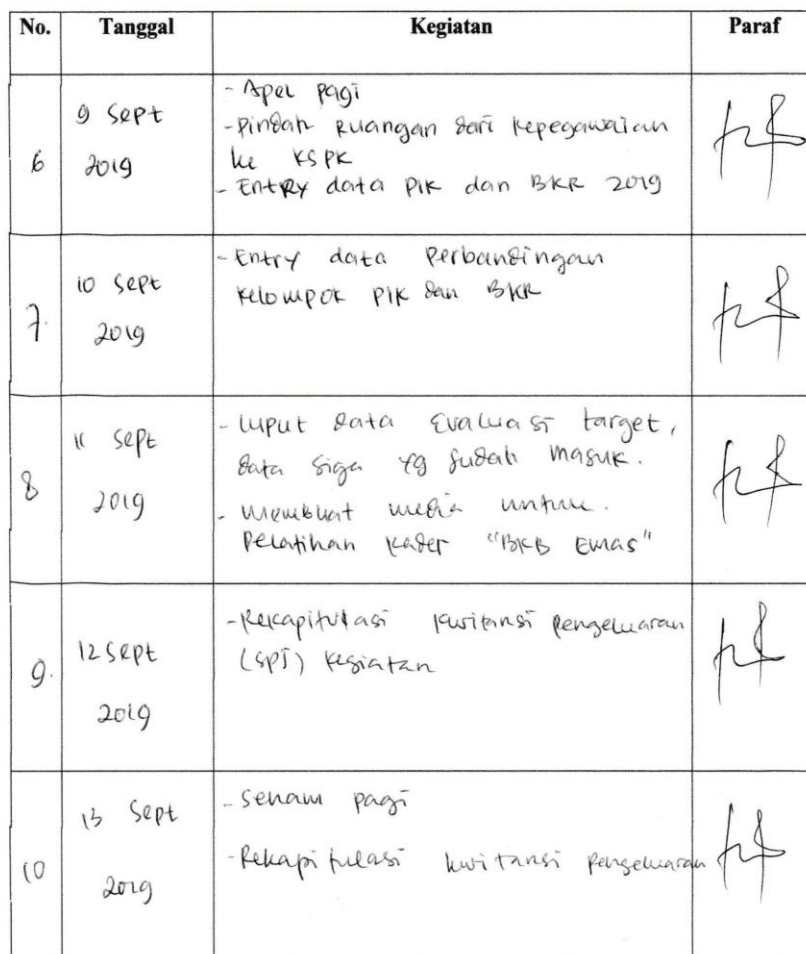 No. Tanggal Kegiatan Paraf
6 9 Sept 2019
- Apel pagi
- Pindah Ruangan dari kepegawaian
ke KSPK
- Entry data PIK dan BKR 2019
7. 10 Sept 2019
- Entry data Perbandingan
Kelompok PIK dan BKR
8 11 Sept 2019
- Input data Evaluasi target,
data siga yg sudah masuk.
- Membuat media untuk.
Pelatihan Kader "BKB Emas"
9. 12 Sept 2019
- Rekapitulasi kwitansi pengeluaran
(SPJ) kegiatan
10 13 Sept 2019
- Senam pagi
- Rekapitulasi kwitansi pengeluaran